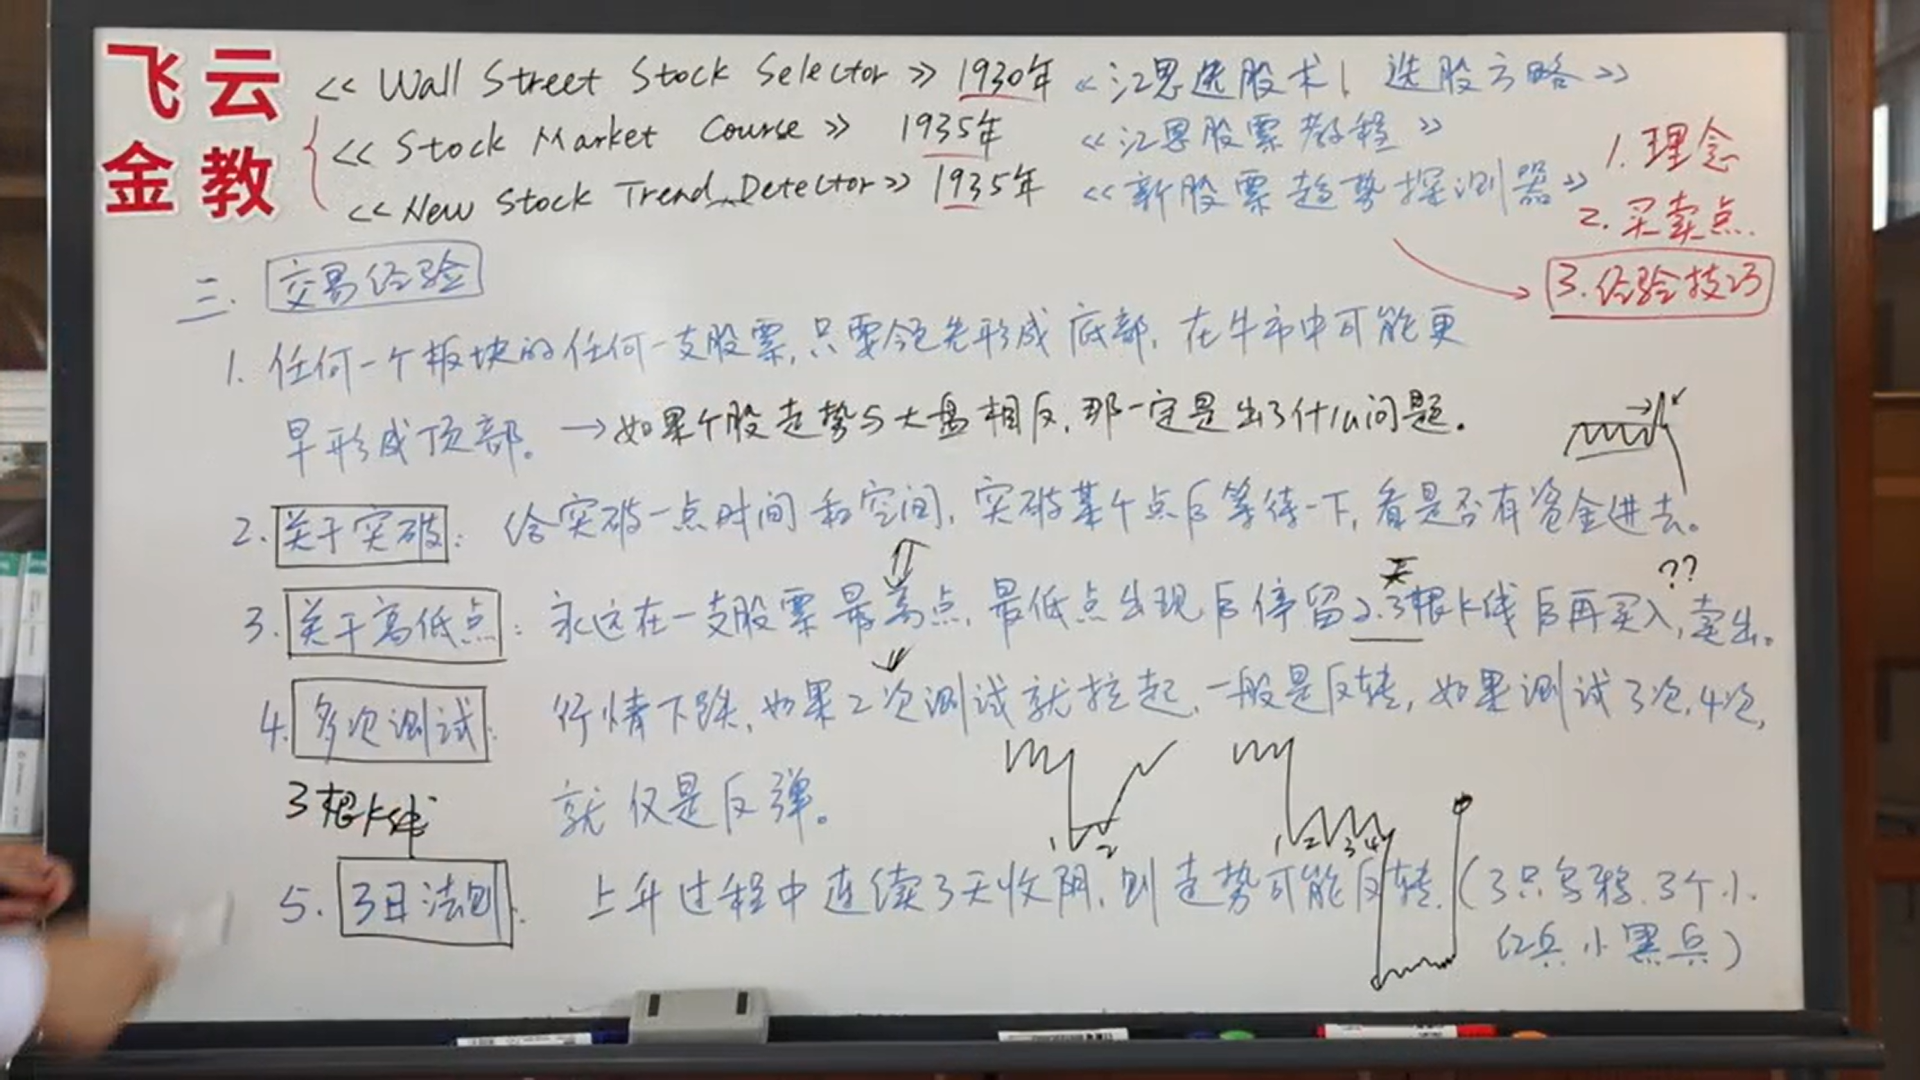 飞云
金教
<< Wall Street Stock Selector >> 1930年 《江恩选股术| 选股方略》
<< Stock Market Course >> 1935年 《江恩股票教程》
<< New Stock Trend Detector >> 1935年 《新股票趋势探测器》
1. 理念
2. 买卖点.
3. 经验技巧
三. 交易经验
1. 任何一个板块的任何一支股票,只要领先形成底部,在牛市中可能更
早形成顶部。→如果个股走势与大盘相反,那一定是出了什么问题.
2. 关于突破: 给突破一点时间和空间,突破某个点后等待一下,看是否有资金进去。
天 ??
3. 关于高低点: 永远在一支股票最高点,最低点出现后停留2.3根K线后再买入,卖出。
4. 多次测试: 行情下跌,如果2次测试就拉起,一般是反转,如果测试3次,4次,
就仅是反弹。
1 2
1 2 3 4
3根K线
5. 3日法则: 上升过程中连续3天收阴,则走势可能反转.(3只乌鸦.3个小
红兵小黑兵)